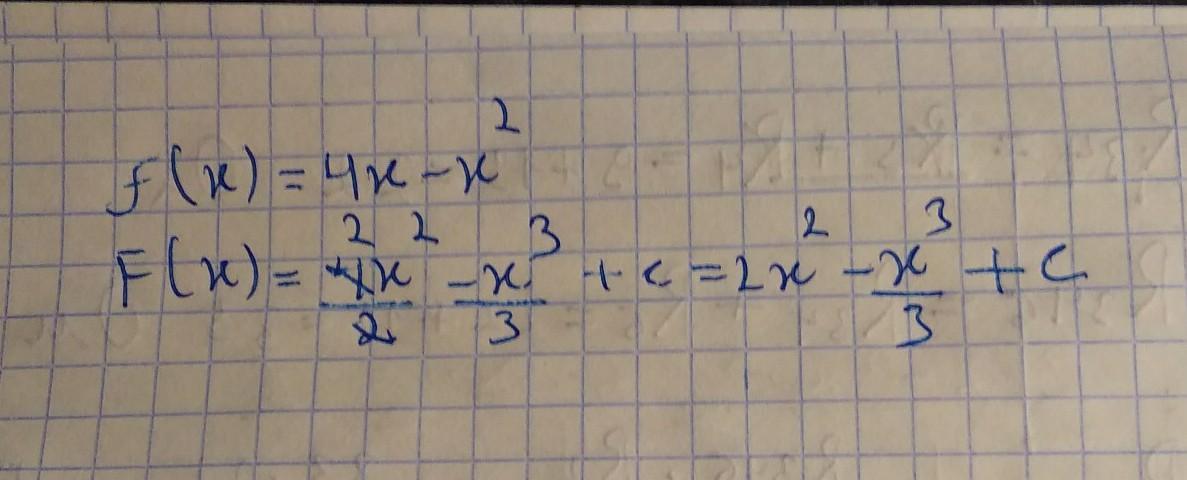 f(x) = 4x - x²
F(x) = 4x²/2 - x³/3 + c = 2x² - x³/3 + c